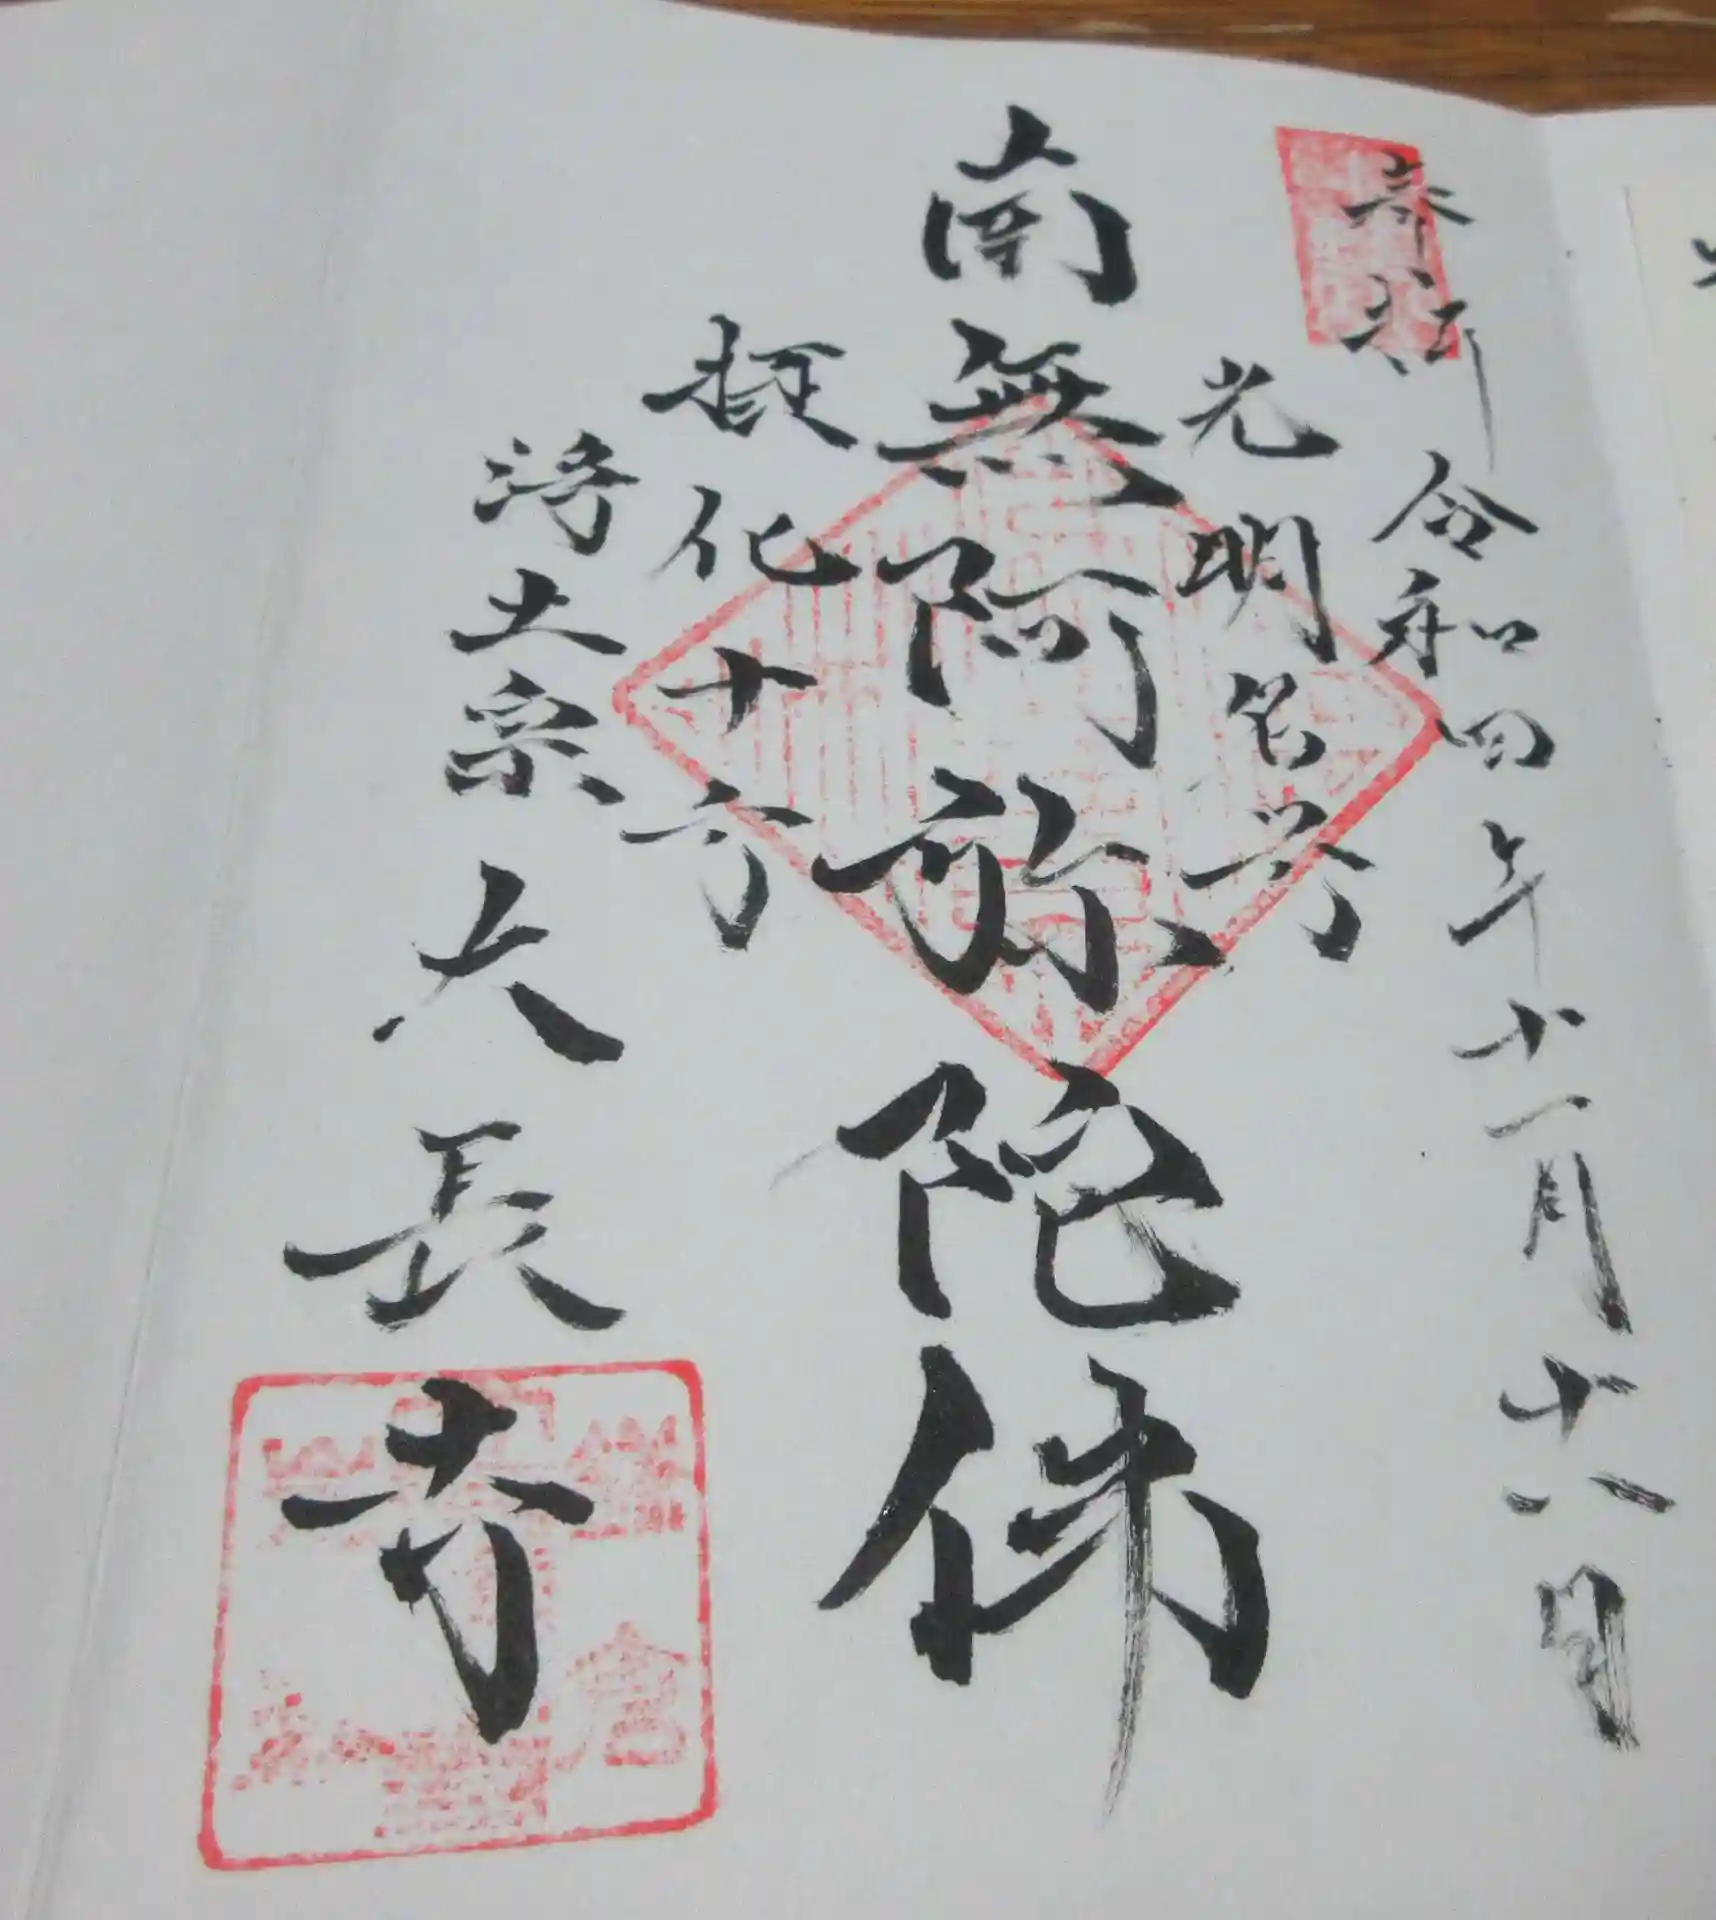 奉拝
令和四年十一月十八日
光明名号
南無阿弥陀佛
摂化十方
浄土宗
大長寺